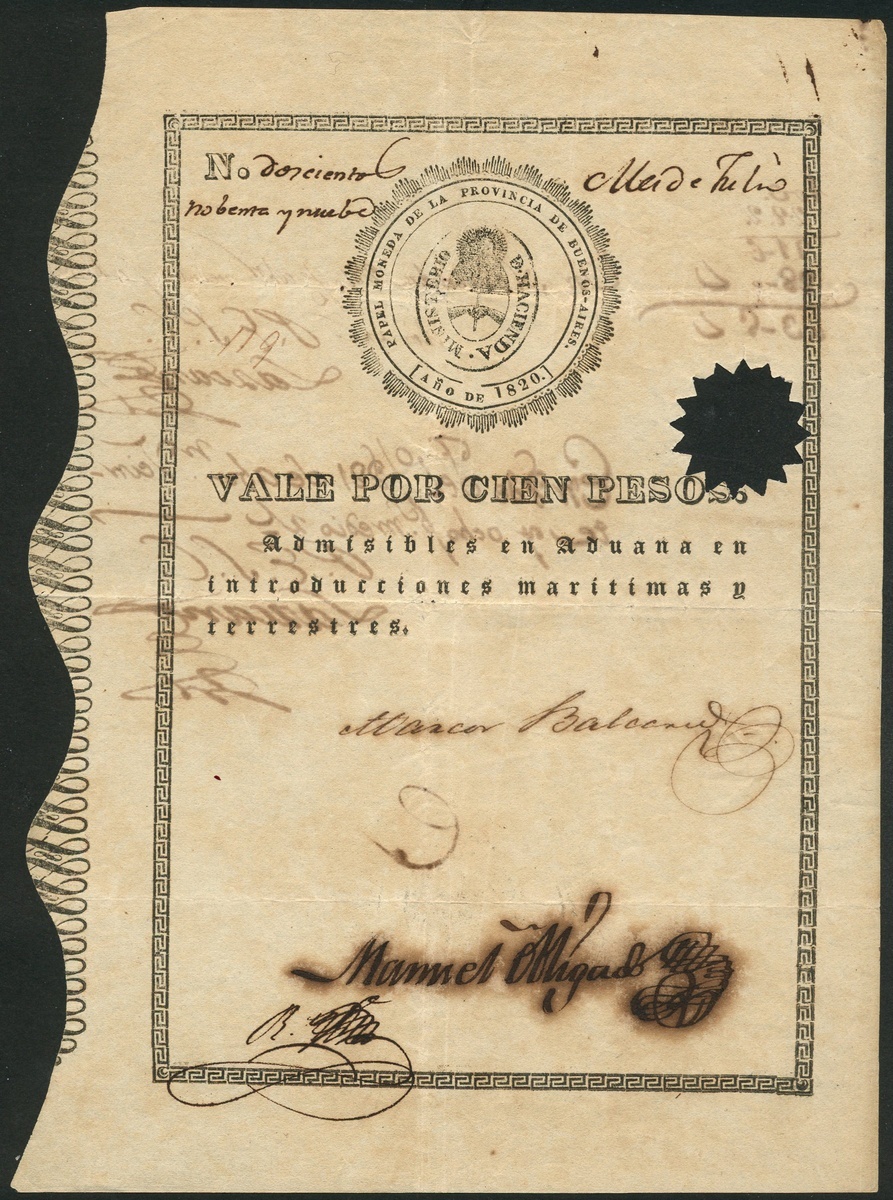 N. dosciento
nobenta y nuebe
Mes de Julio
PAPEL MONEDA DE LA PROVINCIA DE BUENOS-AIRES.
MINISTERIO D. HACIENDA.
[AÑO DE 1820.]
VALE POR CIEN PESOS.
Admisibles en Aduana en
introducciones maritimas y
terrestres.
Marcos Balcarce
Manuel Obligado
R.